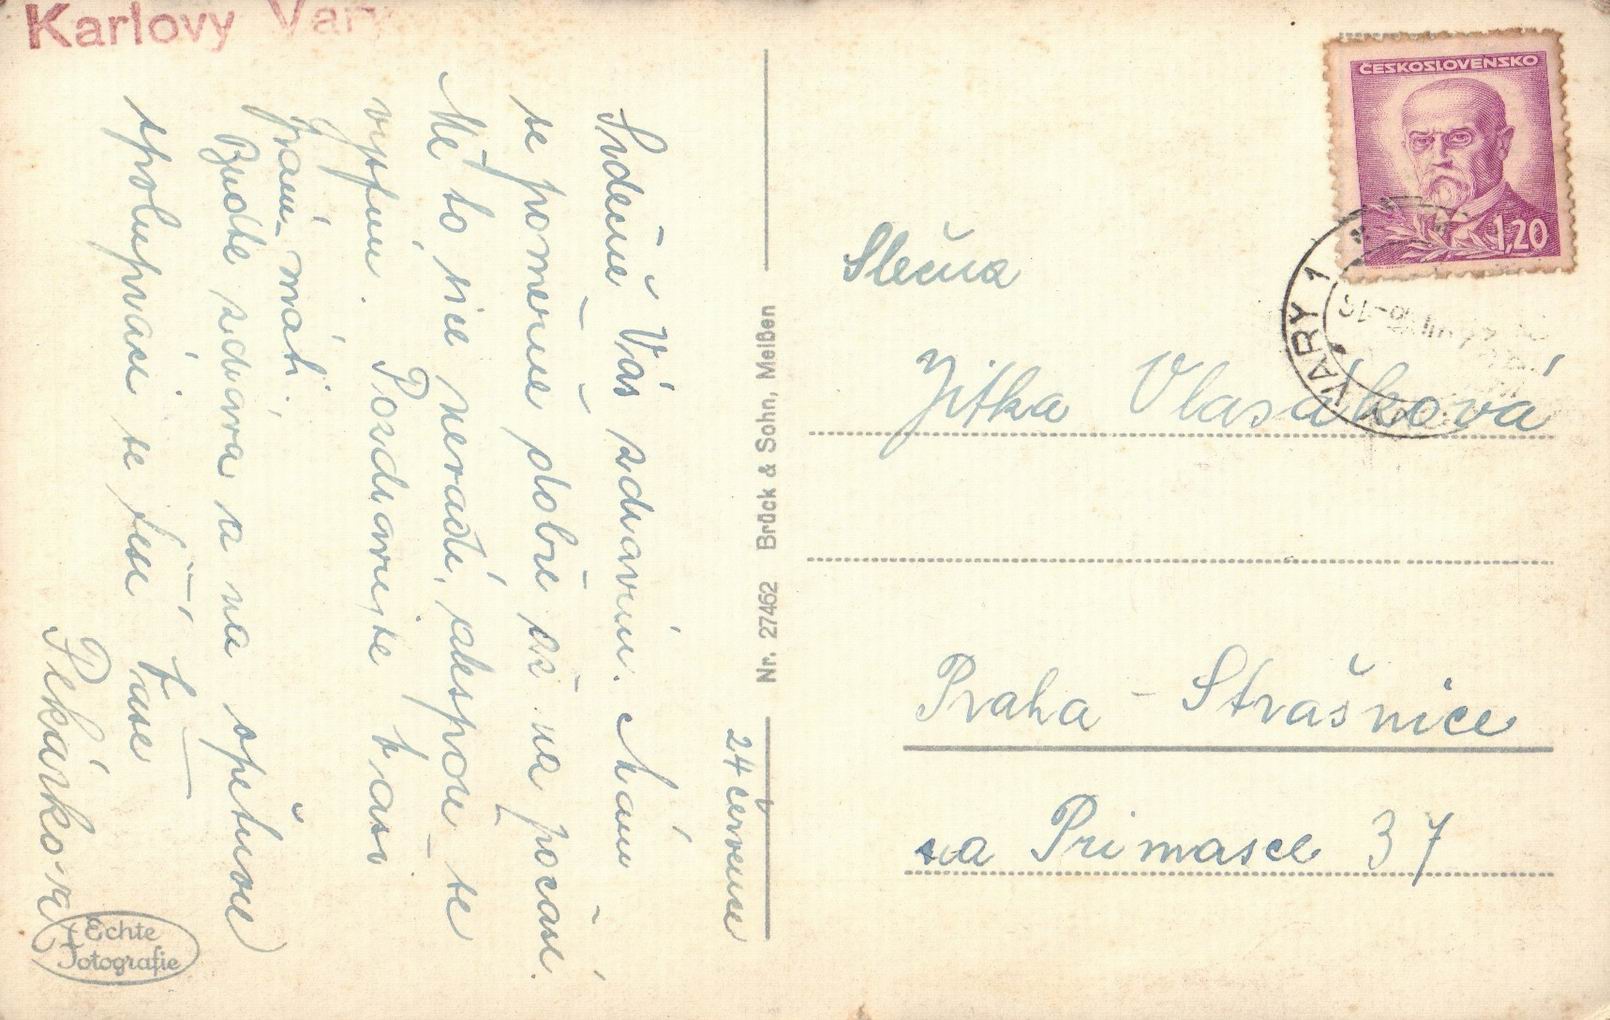 Karlovy Vary
24 července
Srdečně Vás zdravím. Mám
se poměrně dobře až na počasí.
Mě to sice nevadí, alespoň se
vyspím. Pozdravujte
paní máti.
Buďte zdráva a na opětnou
spolupráci se těší Vaše
Pekárková
Echte
Fotografie
Nr. 27462 Brück & Sohn, Meißen
ČESKOSLOVENSKO
1,20
VARY 1
Slečna
Jitka Vlasáková
Praha - Strašnice
na Primasce 37